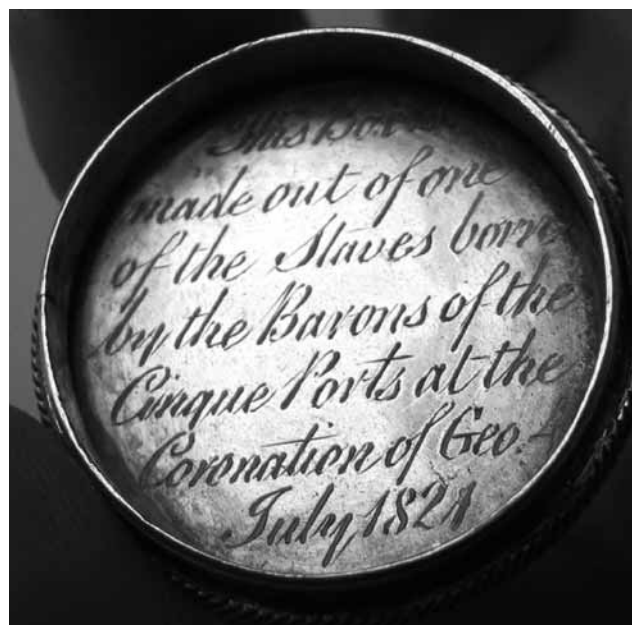 This Box
made out of one
of the Staves born
by the Barons of the
Cinque Ports at the
Coronation of Geo. 4
July 1821